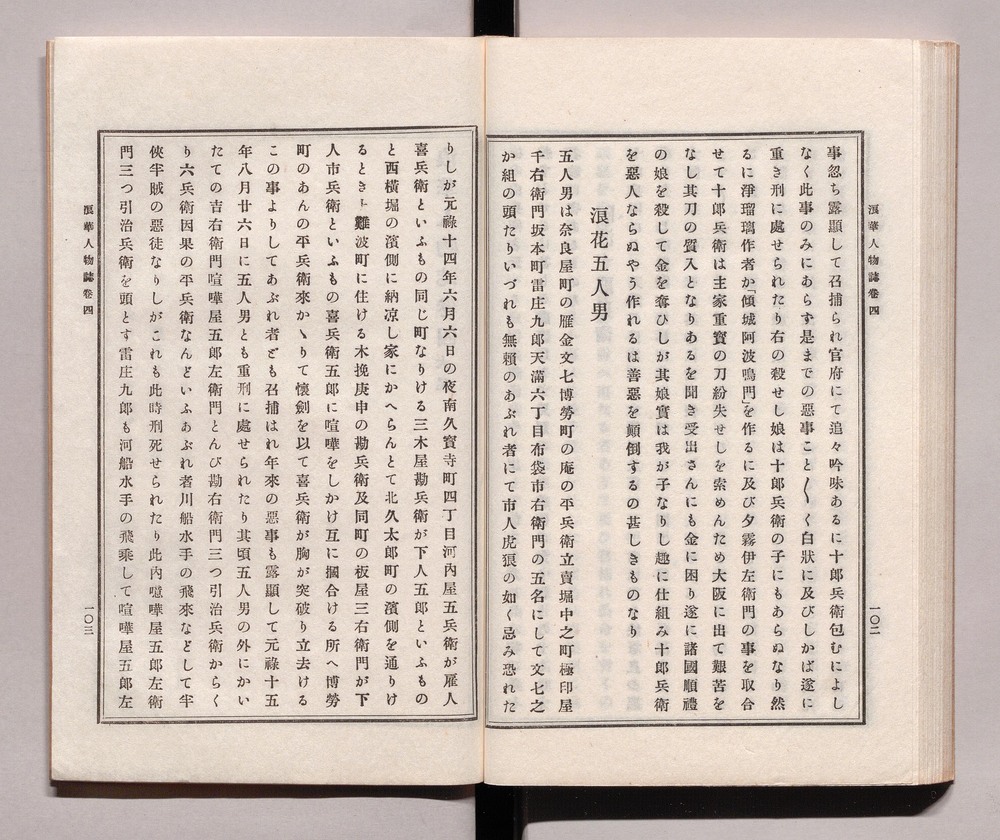 浪華人物誌卷四
一〇二
事忽ち露顯して召捕られ官府にて追々吟味あるに十郎兵衛包むによし
なく此事のみにあらず是までの惡事こと〴〵く白狀に及びしかば遂に
重き刑に處せられたり右の殺せし娘は十郎兵衛の子にもあらぬなり然
るに淨瑠璃作者か「傾城阿波鳴門」を作るに及び夕霧伊左衛門の事を取合
せて十郎兵衛は主家重寳の刀紛失せしを索めんため大阪に出て艱苦を
なし其刀の質入となりあるを聞き受出さんにも金に困り遂に諸國順禮
の娘を殺して金を奪ひしが其娘實は我が子なりし趣に仕組み十郎兵衛
を惡人ならぬやう作れるは善惡を顚倒するの甚しきものなり
浪花五人男
五人男は奈良屋町の雁金文七博勞町の庵の平兵衛立賣堀中之町極印屋
千右衛門坂本町雷庄九郎天滿六丁目布袋市右衛門の五名にして文七之
か組の頭たりいづれも無賴のあぶれ者にて市人虎狼の如く忌み恐れた
りしが元祿十四年六月六日の夜南久寳寺町四丁目河內屋五兵衛が雇人
喜兵衛といふもの同じ町なりける三木屋勘兵衛が下人五郎といふもの
と西橫堀の濱側に納凉し家にかへらんとて北久太郎町の濱側を通りけ
るときし難波町に住ける木挽庚申の勘兵衛及同町の板屋三右衛門が下
人市兵衛といふもの喜兵衛五郎に喧嘩をしかけ互に摑合ける所へ博勞
町のあんの平兵衛來かゝりて懷劍を以て喜兵衛が胸が突破り立去ける
この事よりしてあぶれ者ども召捕はれ年來の惡事も露顯して元祿十五
年八月廿六日に五人男とも重刑に處せられたり其頃五人男の外にかい
たての吉右衛門喧嘩屋五郎左衛門とんび勘右衛門三つ引治兵衛からく
り六兵衛因果の平兵衛なんどいふあぶれ者川船水手の飛來などして半
俠半賊の惡徒なりしがこれも此時刑死せられたり此內喧嘩屋五郎左衛
門三つ引治兵衛を頭とす雷庄九郎も河船水手の飛乘して喧嘩屋五郎左
浪華人物誌卷四
一〇三